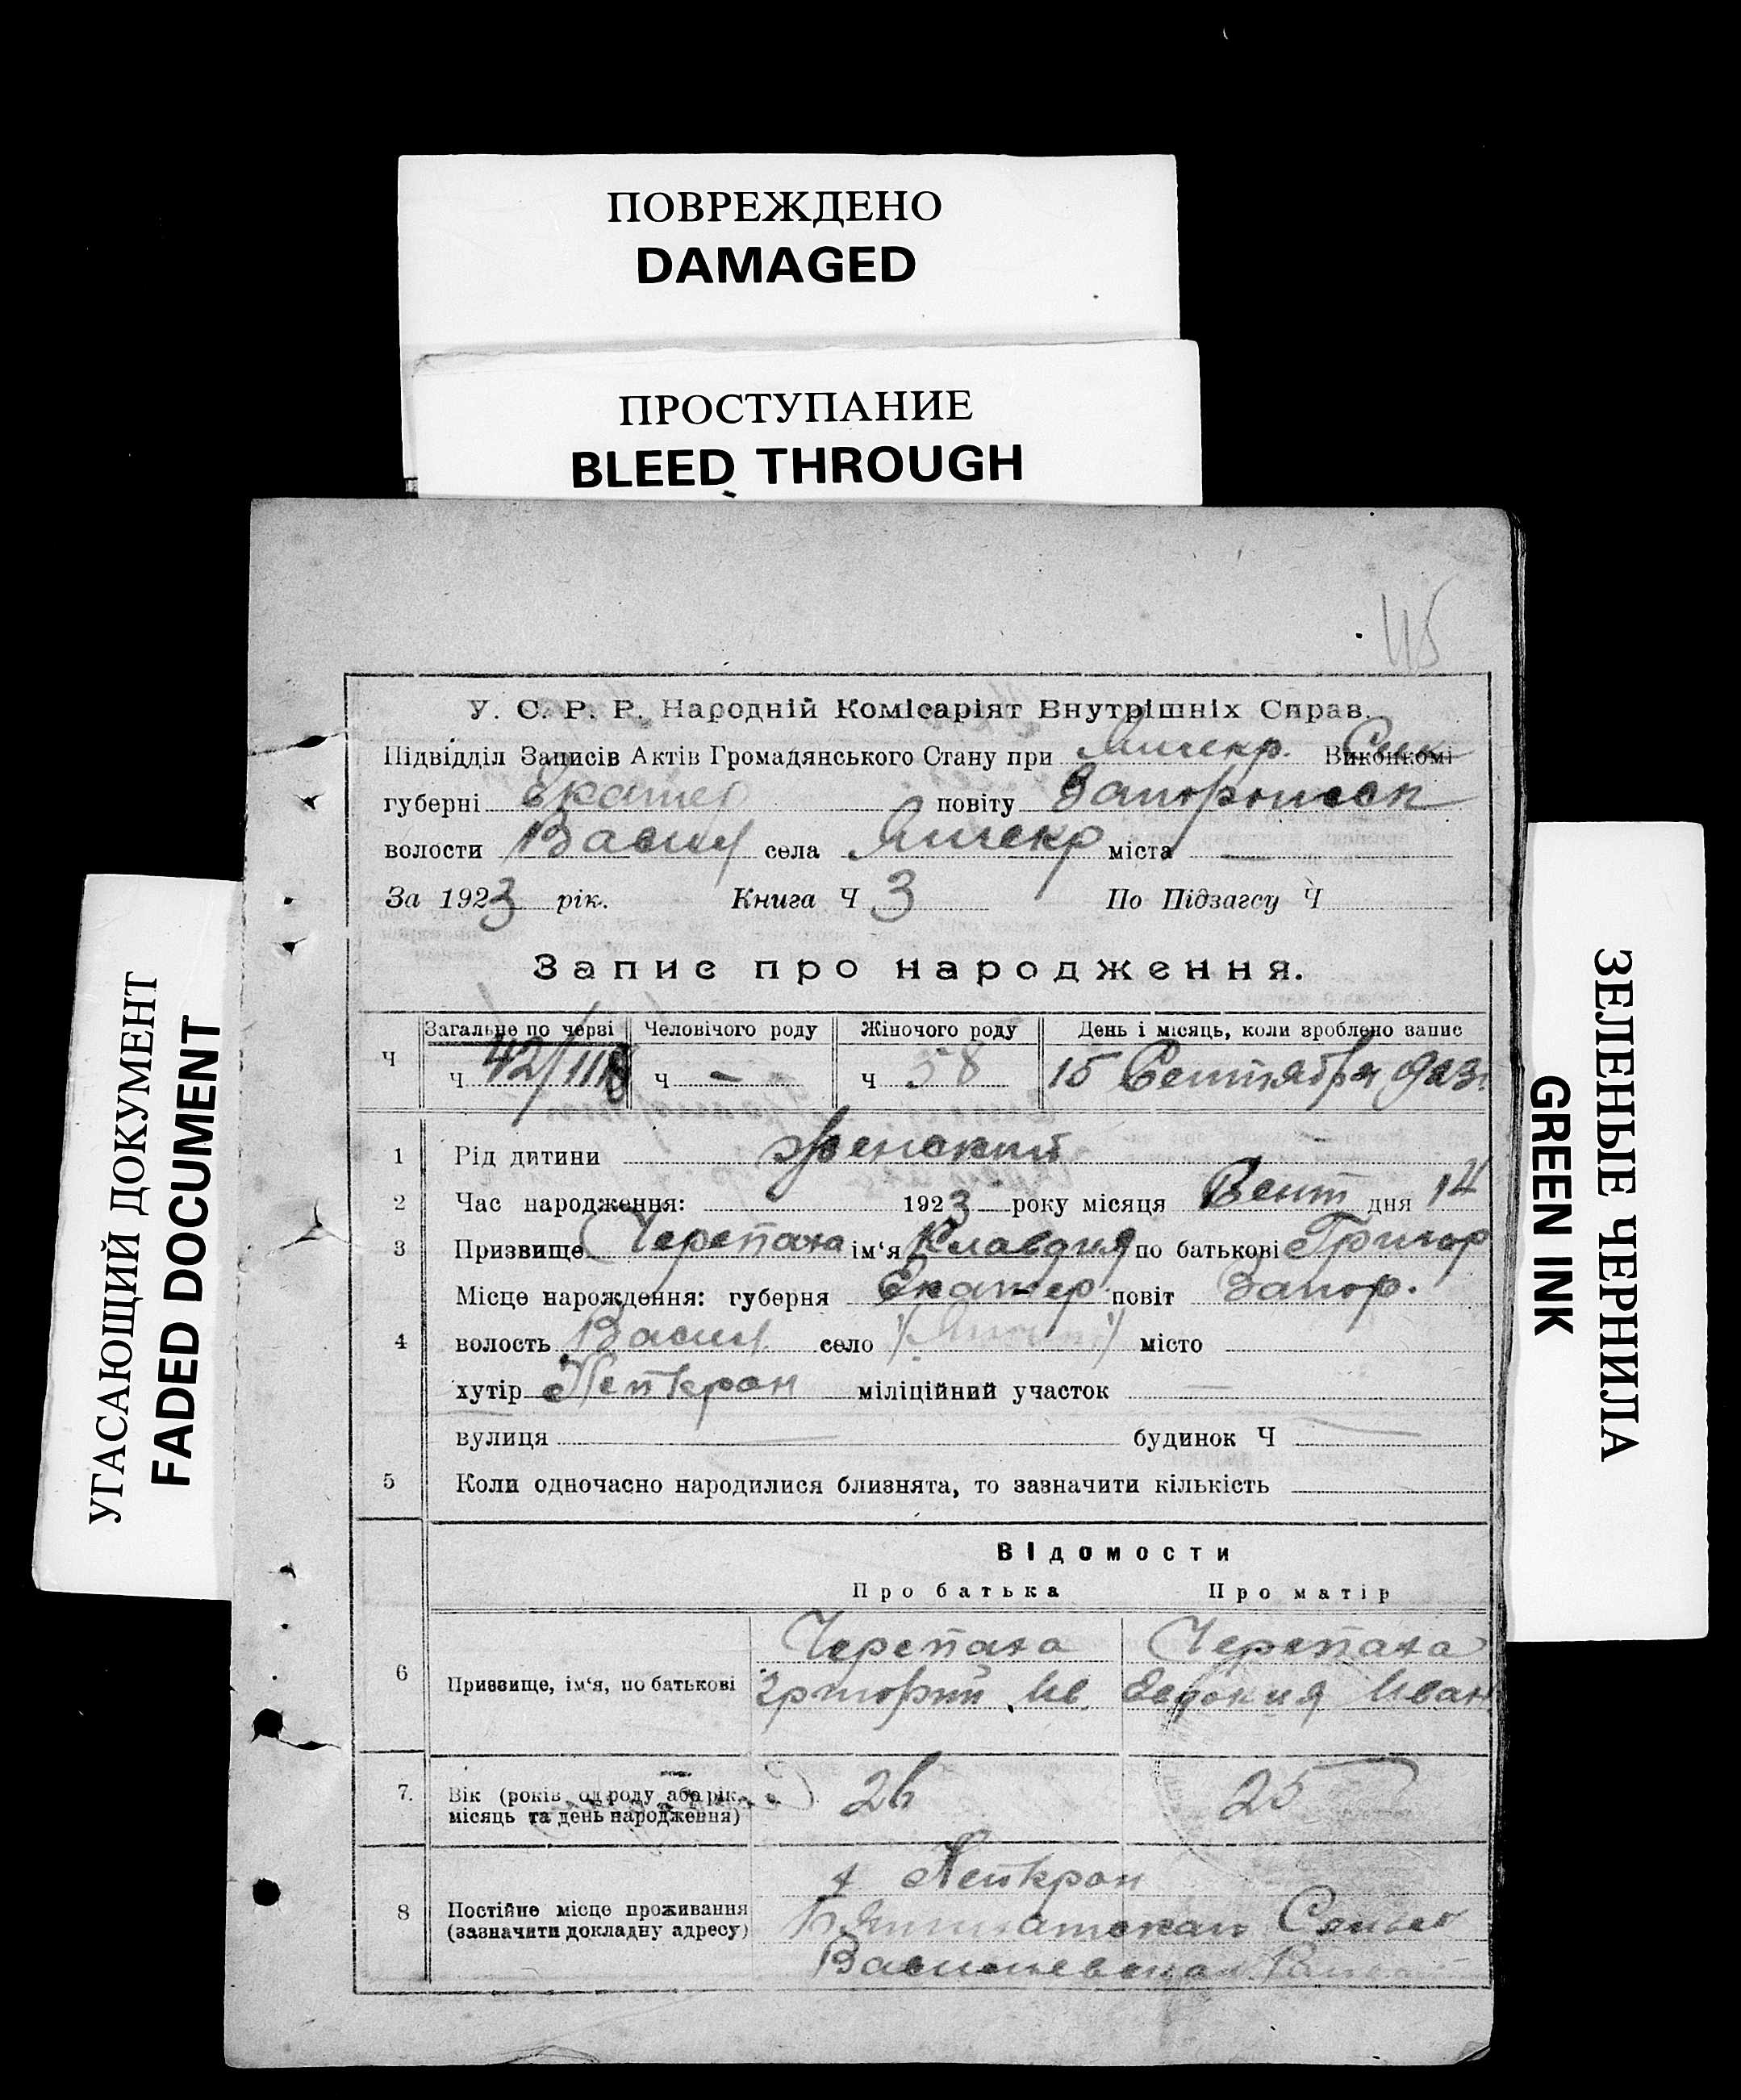 ПОВРЕЖДЕНО
DAMAGED
ПРОСТУПАНИЕ
BLEED THROUGH
УГАСАЮЩИЙ ДОКУМЕНТ
FADED DOCUMENT
ЗЕЛЕНЫЕ ЧЕРНИЛА
GREEN INK
У. С. Р. Р. Народній Комісаріят Внутрішніх Справ.
Підвідділ Записів Актів Громадянського Стану при Виконкомі
губерні Екатер повіту
волости Васил села міста —
За 1923 рік. Книга Ч 3 По Підзагсу Ч
Запис про народження.
Ч Загальне по черзі Человічого роду Жіночого роду День і місяць, коли зроблено запис
Ч 42/118 Ч — Ч 58 15 Сентября 923.
1 Рід дитини Женский
2 Час народження: 1923 року місяця Сент дня 14
3 Призвище Черепаха ім'я Клавдия по батькові Григор
Місце нарождення: губерня Екатер повіт Запор.
4 волость Васил село місто
хутір Нейкрон міліційний участок —
вулиця — будинок Ч —
5 Коли одночасно народилися близнята, то зазначити кількість
Відомости
Про батька Про матір
6 Призвище, ім'я, по батькові
Черепаха Черепаха
Григорий Ив. Евдокия Иван
7. Вік (років од роду або рік, місяць та день народження) 26 25
8 Постійне місце проживання (зазначити докладну адресу)
х Нейкрон
Васильевская